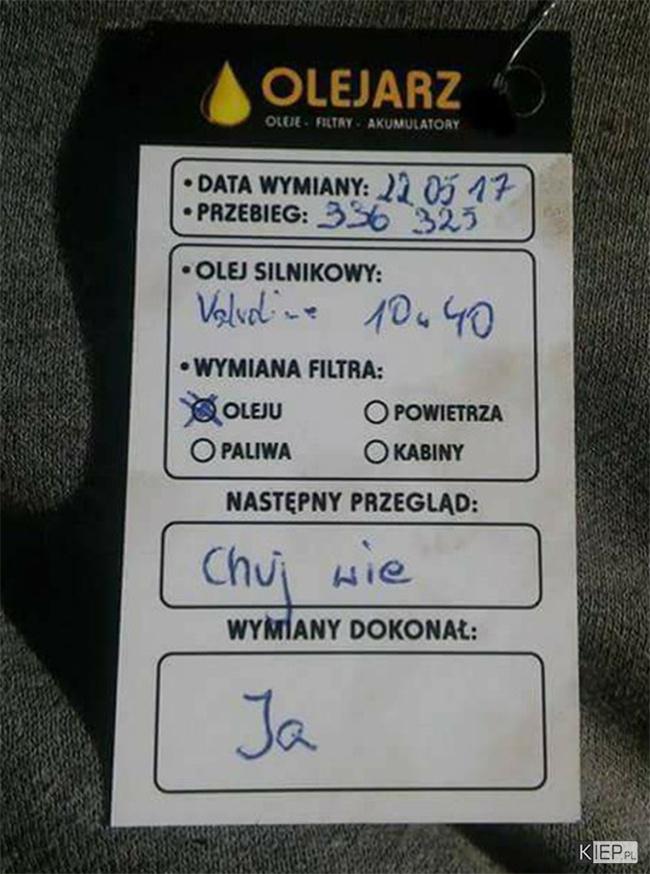 OLEJARZ
OLEJE - FILTRY - AKUMULATORY
• DATA WYMIANY: 22 05 17
• PRZEBIEG: 336 325
• OLEJ SILNIKOWY:
10w40
• WYMIANA FILTRA:
OLEJU POWIETRZA
PALIWA KABINY
NASTĘPNY PRZEGLĄD:
Chuj wie
WYMIANY DOKONAŁ:
Ja
KIEP.PL